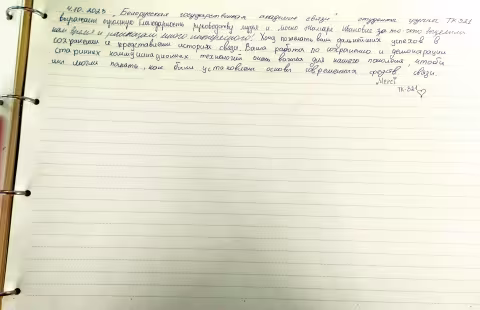 4.10.2023 "Белорусская государственная академия связи" студенты группы ТК-321
выражают огромную благодарность руководству музея и лично Тамаре Ивановне за то что выделили
нам время и рассказали много интересного. Хочу пожелать вам дальнейших успехов в
сохранении и представлении истории связи. Ваша работа по сохранению и демонстрации
старинных коммуникационных технологий очень важна для нашего поколения, чтобы
мы могли понять, как были установлены основы современных средств связи.
"Merci"
ТК-321